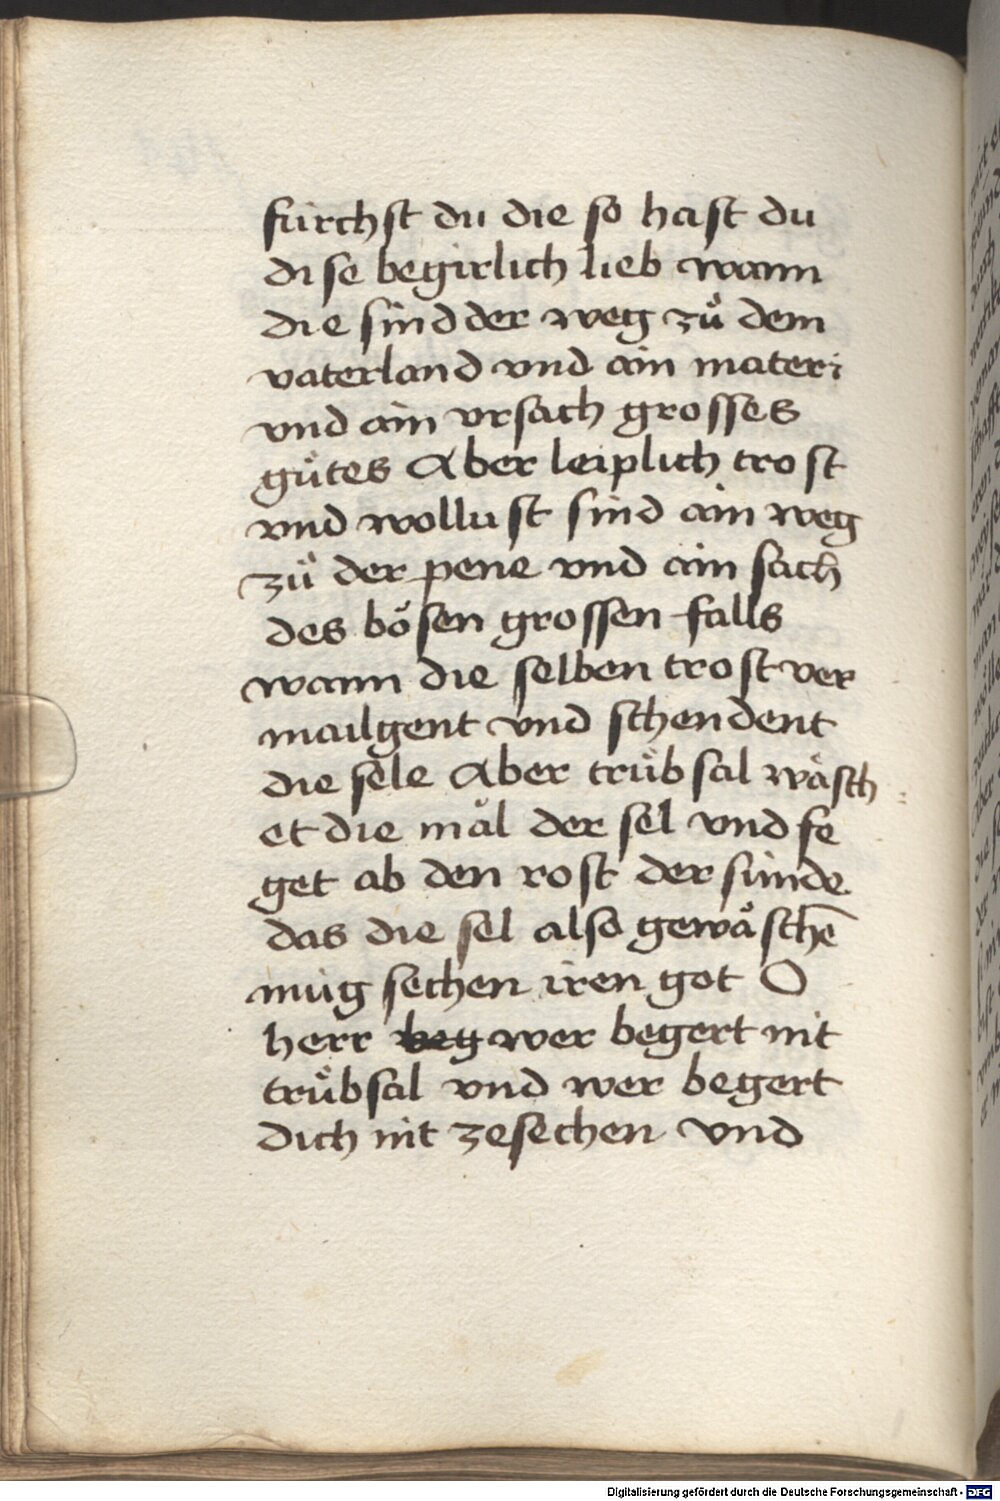 fürchst du die so hast du
dise begirlich lieb wann
die sind der weg zů dem
vaterland vnd ain materi
vnd ain vrsach grosses
gůtes Aber leiplich trost
vnd wollust sind ain weg
zů der pene vnd ain sach
des bösen grossen falls
wann die selben trost ver
mailgent vnd schendent
die sele Aber trůbsal wäsch
et die mäl der sel vnd fe
get ab den rost der sünde
das die sel also gewäschē
müg sechen iren got O
herr beg wer begert nit
trůbsal vnd wer begert
dich nit zesechen vnd
Digitalisierung gefördert durch die Deutsche Forschungsgemeinschaft - DFG